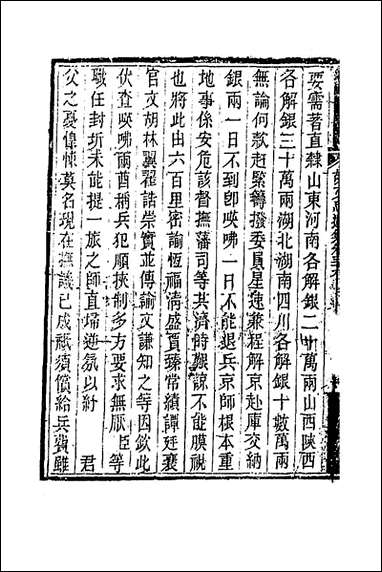 要需著直隸山東河南各解銀二十萬兩山西陝西
各解銀三十萬兩湖北湖南四川各解銀十數萬兩
無論何款趕緊籌撥委員星速兼程解京赴庫交納
銀兩一日不到卽㖟咈一日不能退兵京師根本重
地事係安危該督撫藩司等共濟時艱諒不能膜視
也將此由六百里密諭恆福清盛賈臻常績譚廷襄
官文胡林翼翟誥崇實並傳諭文謙知之等因欽此
伏查㖟咈爾酋稱兵犯順挾制多方要求無厭臣等
職任封圻未能提一旅之師直埽逆氛以紓 君
父之憂惶悚莫名現在撫議已成祇須償給兵費雖